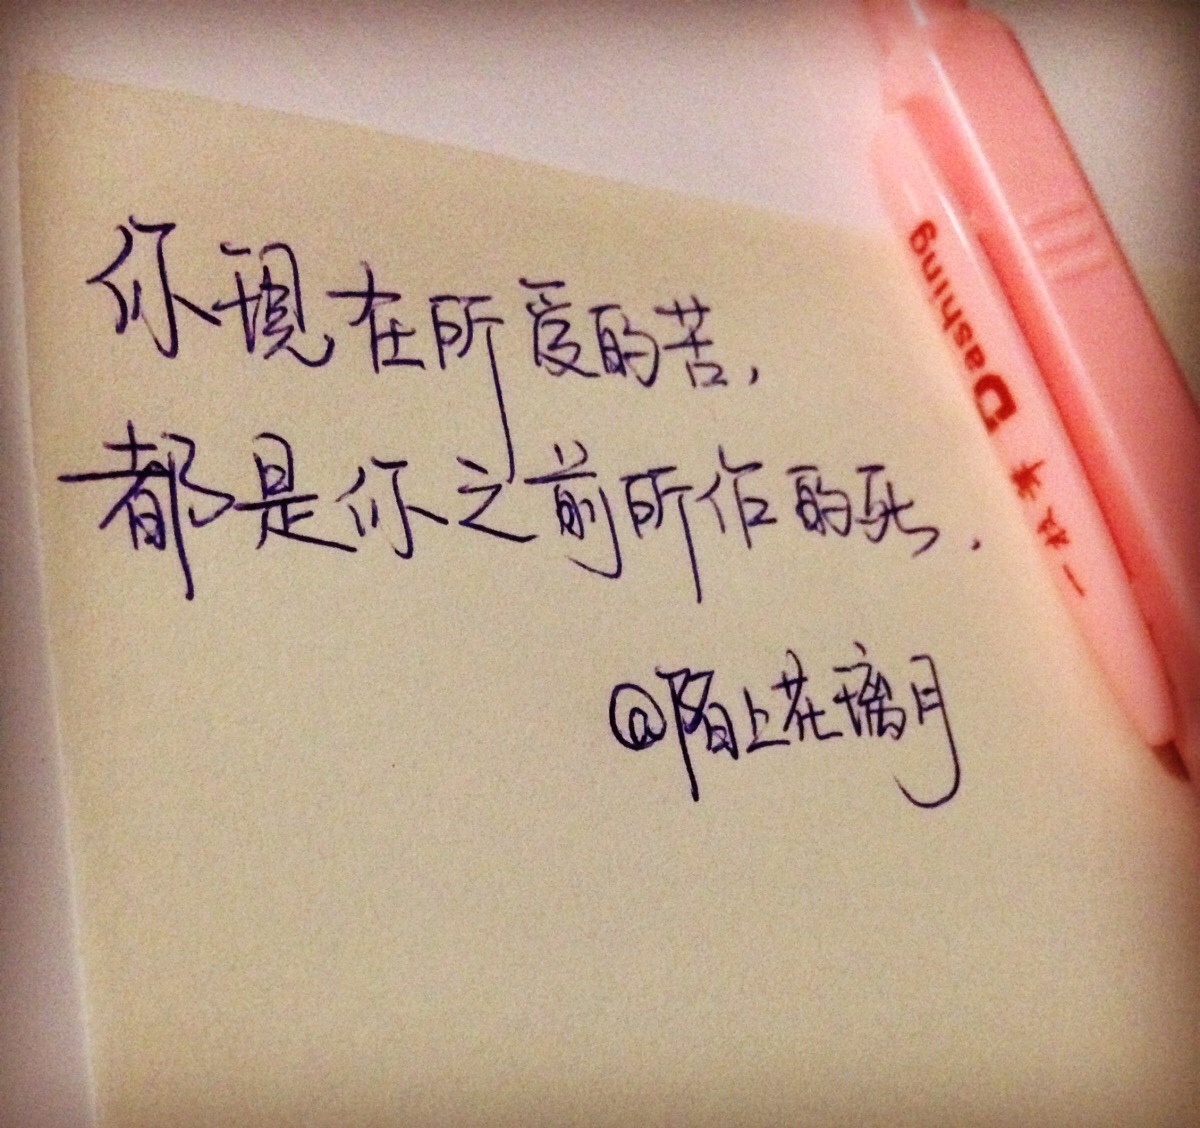 你现在所受的苦，
都是你之前所作的死．
@陌上花璃月
Dashing